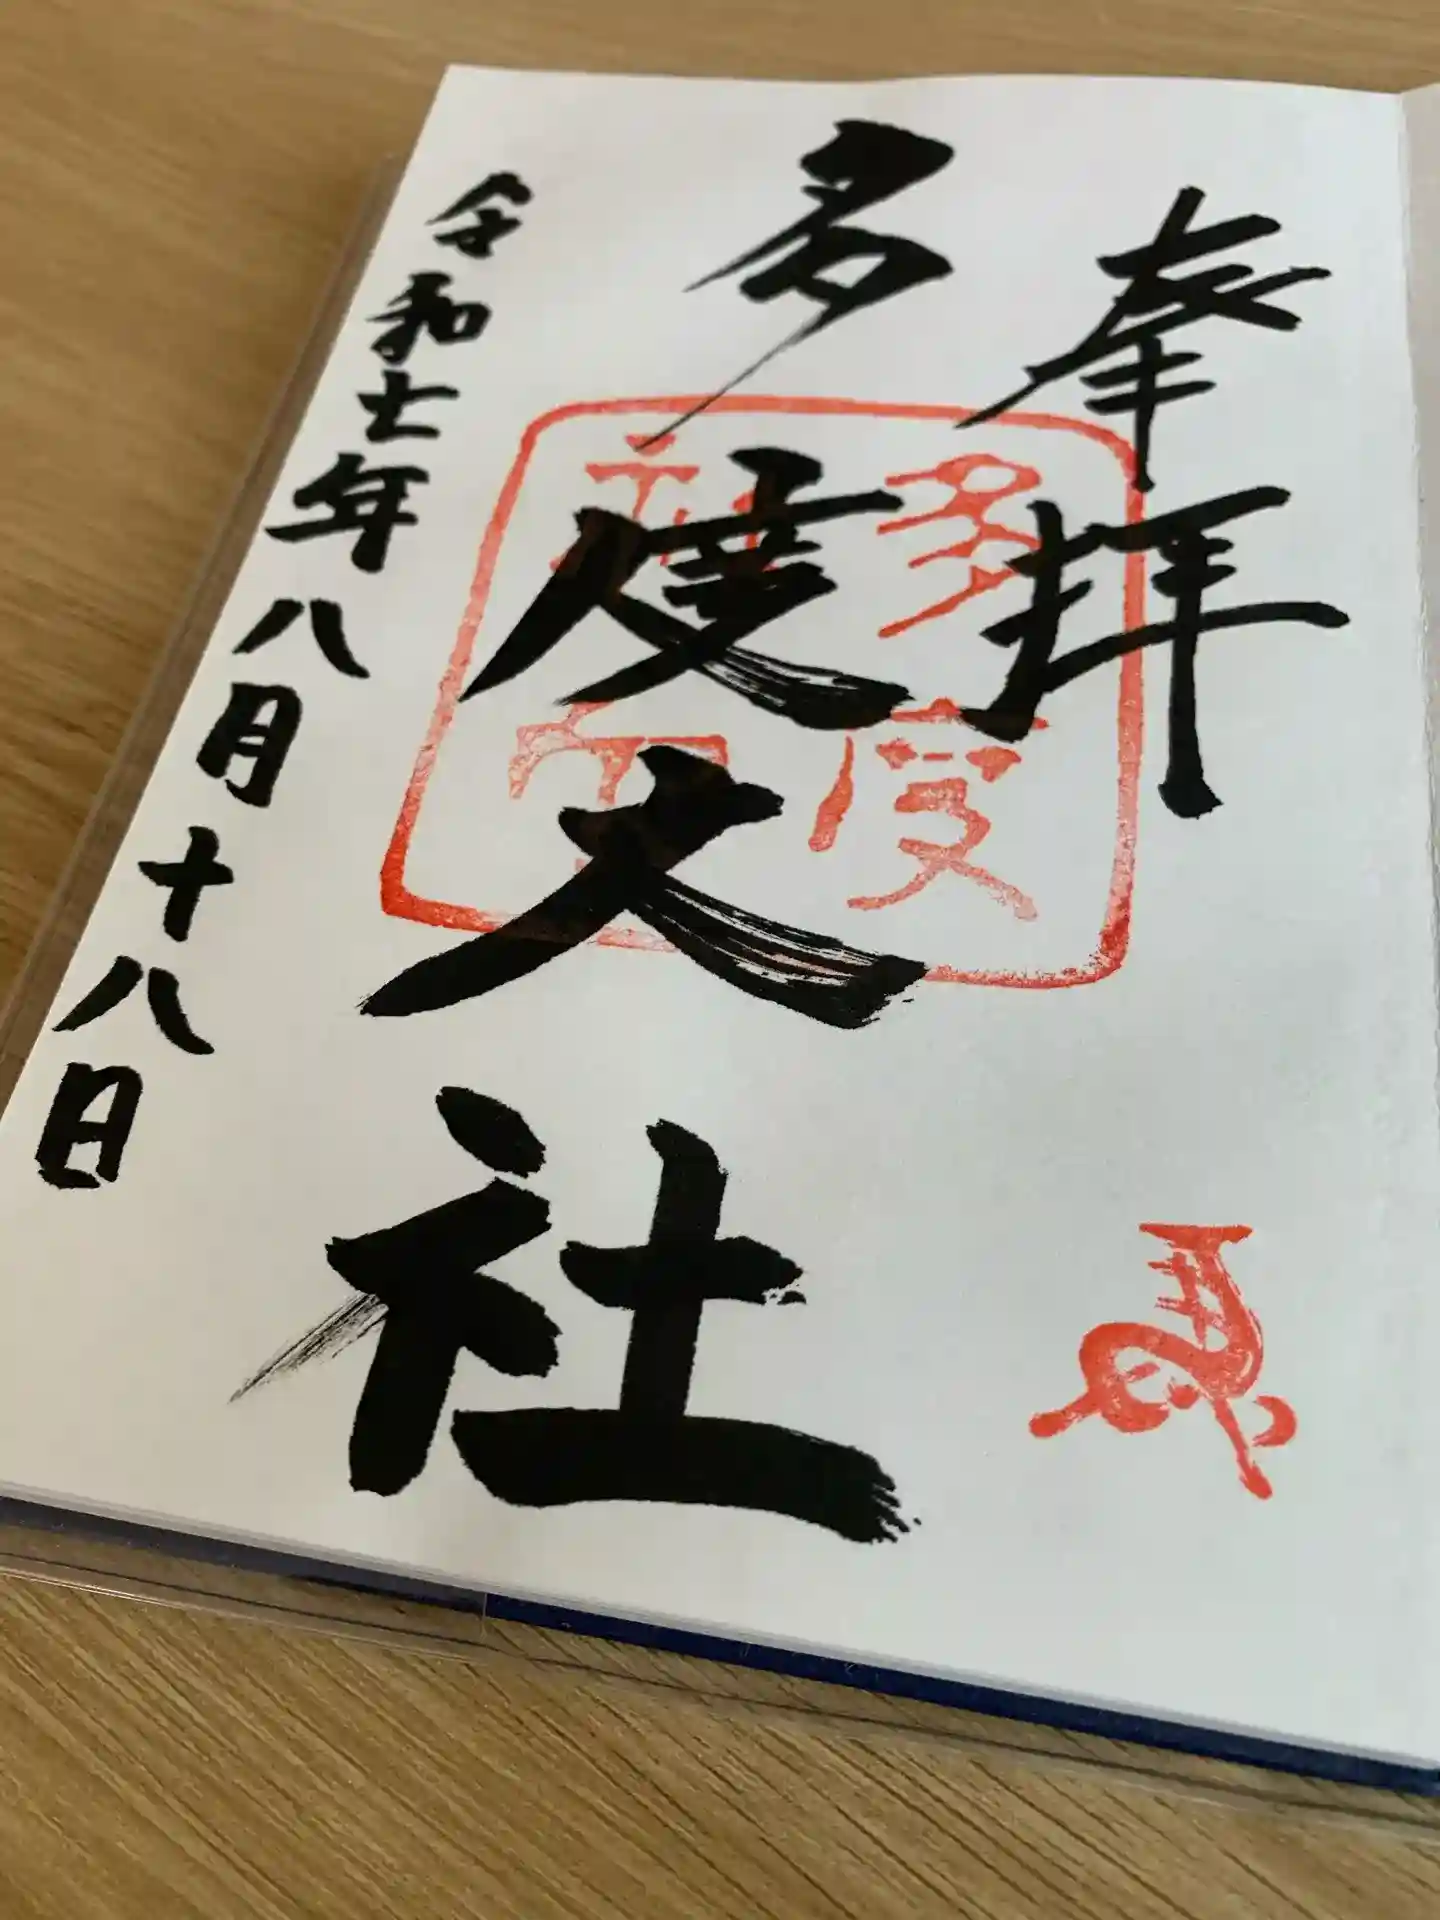 奉拝
多度大社
令和七年八月十八日
多度